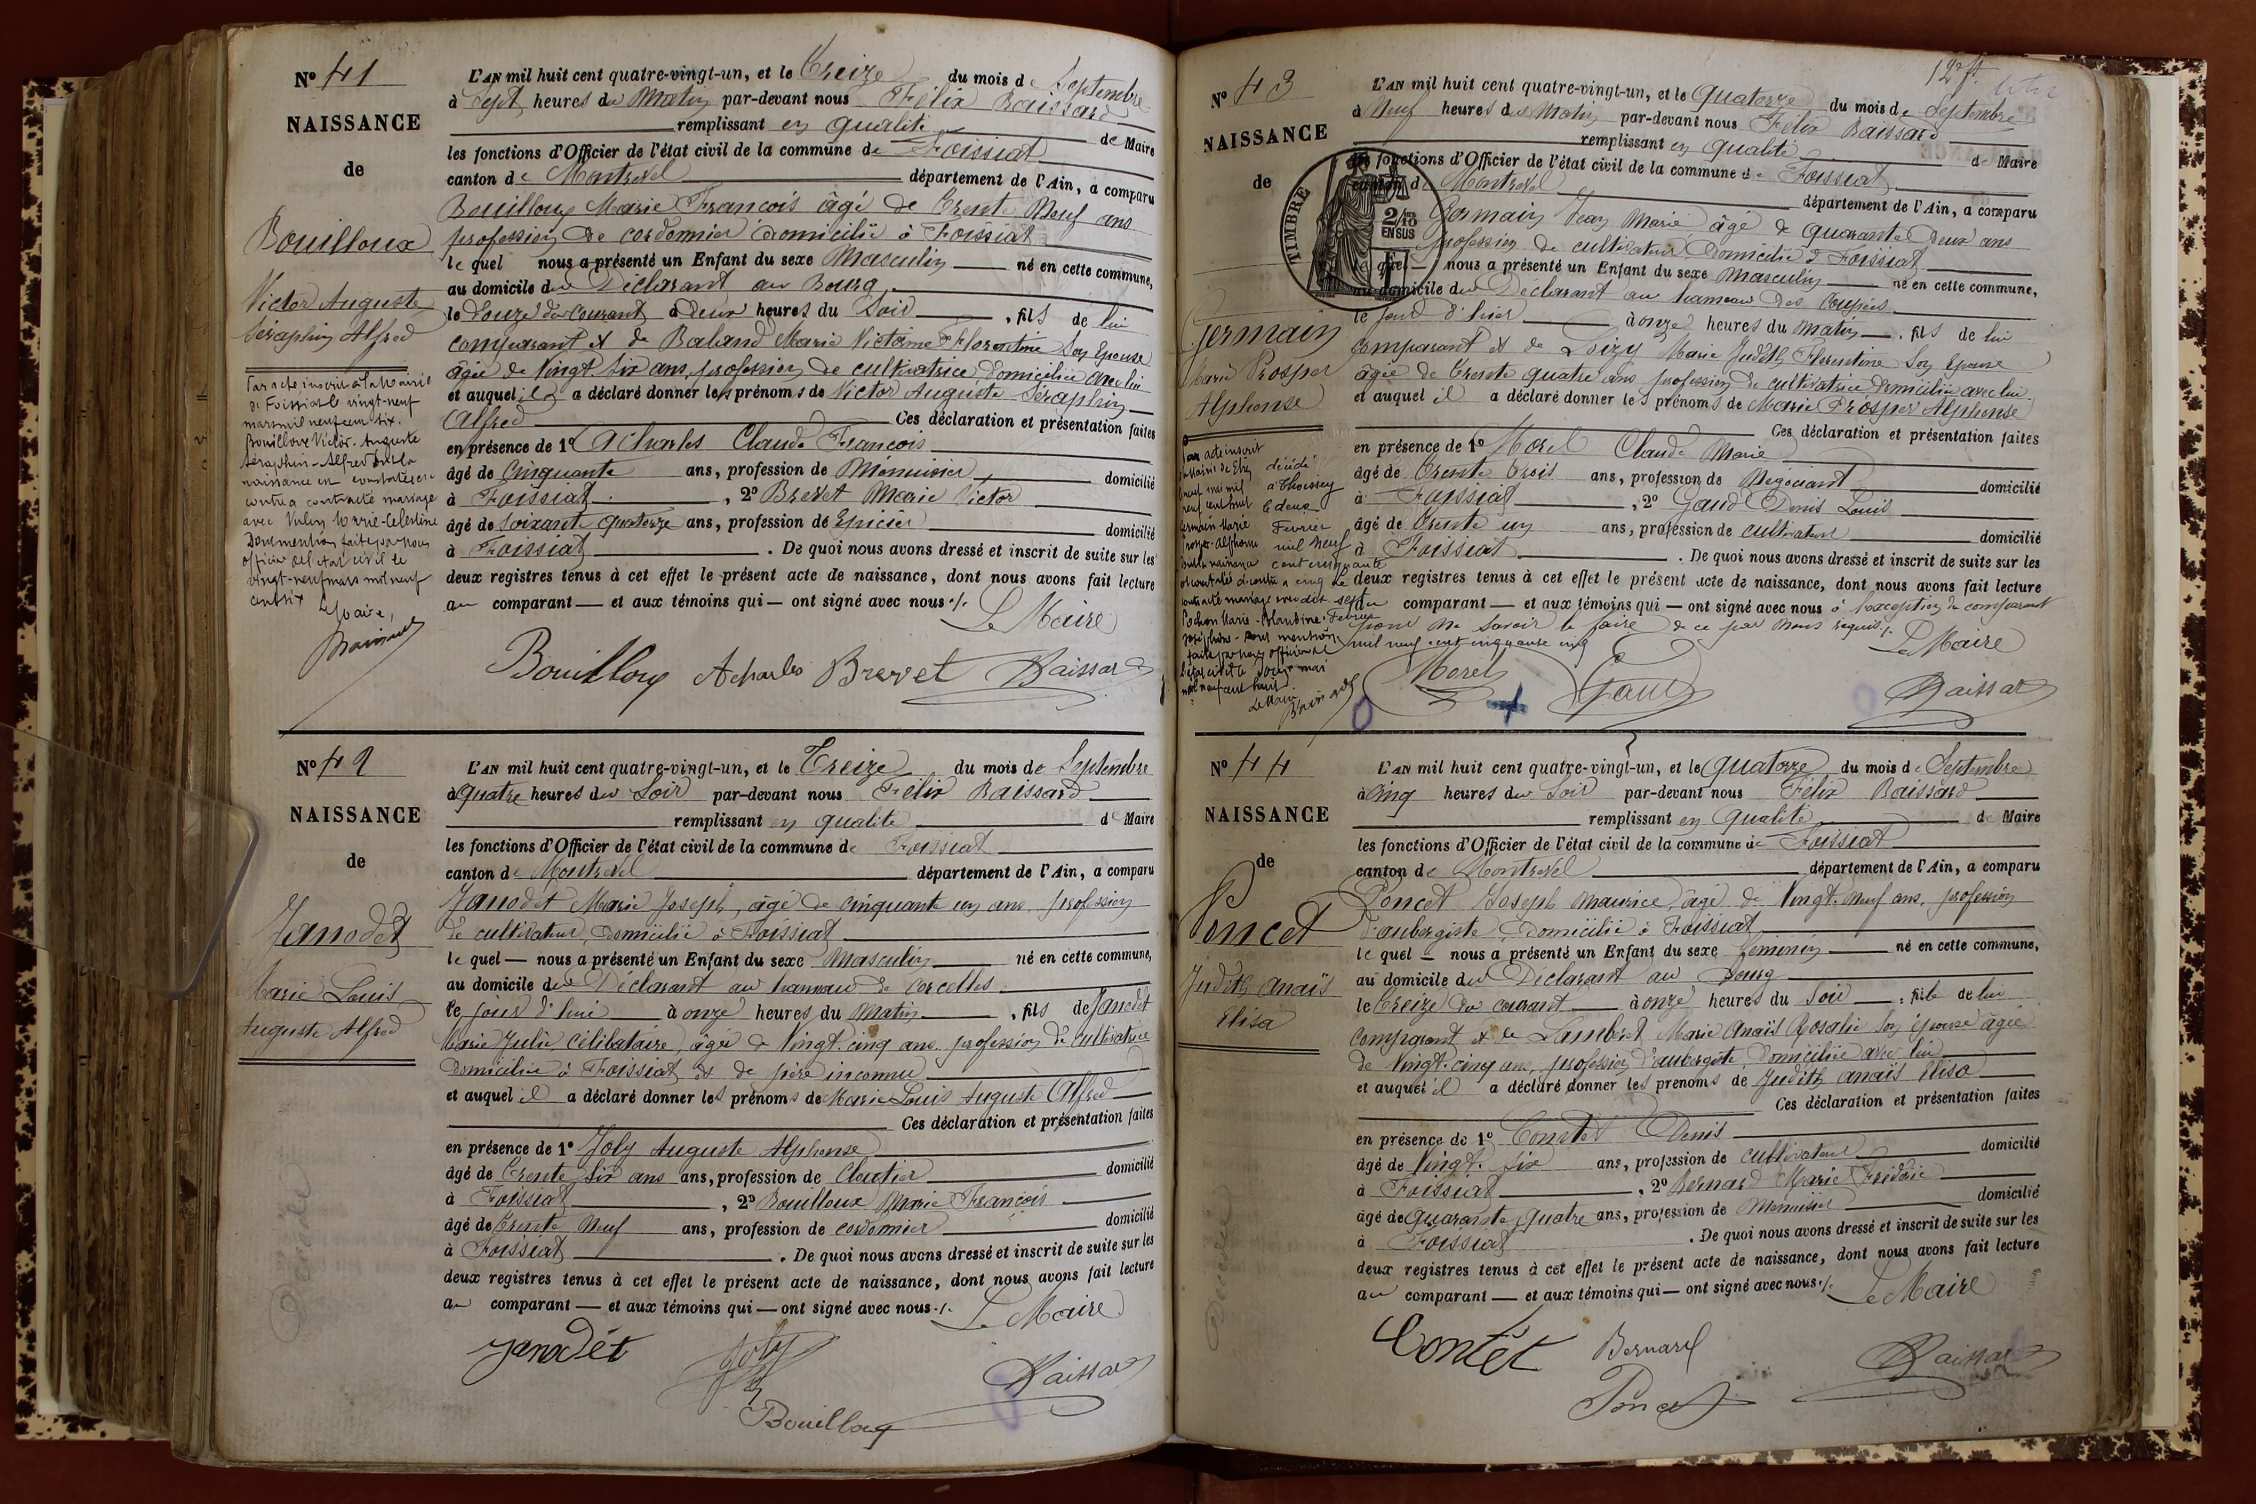 N° 41
NAISSANCE
de
Bouilloux
Victor Auguste
Seraphin Alfred
Par acte inscrit à la Mairie
de Foissiat le vingt-neuf
mars mil neuf cent six.
Bouilloux Victor-Auguste
Séraphin-Alfred dont la
naissance est constatée ci-
contre a contracté mariage
avec Marie-Célestine
Dont mention faite par nous
officier de l'état civil le
vingt-neuf mars mil neuf
cent six
Le Maire,
L'AN mil huit cent quatre-vingt-un, et le Treize du mois de Septembre
à Sept heures du Matin par-devant nous Félix Baissard
remplissant en qualité de Maire
les fonctions d'Officier de l'état civil de la commune de Foissiat
canton de Montrevel département de l'Ain, a comparu
Bouilloux Marie François âgé de Trente Neuf ans
profession de cordonnier domicilié à Foissiat
le quel nous a présenté un Enfant du sexe Masculin né en cette commune,
au domicile du Déclarant au Bourg
le Douze du courant à Deux heures du Soir , fils de lui
comparant et de Baland Marie Victorine Florentine son épouse
âgée de Vingt six ans, profession de cultivatrice domiciliée avec lui
et auquel il a déclaré donner les prénoms de Victor Auguste Séraphin
Alfred Ces déclaration et présentation faites
en présence de 1° Acharles Claude François
âgé de Cinquante ans, profession de Menuisier domicilié
à Foissiat , 2° Brevet Marie Victor
âgé de Soixante quatorze ans, profession de Epicier domicilié
à Foissiat . De quoi nous avons dressé et inscrit de suite sur les
deux registres tenus à cet effet le présent acte de naissance, dont nous avons fait lecture
au comparant — et aux témoins qui — ont signé avec nous ./.
Le Maire
Bouilloux Acharles Brevet Baissard
N° 42
NAISSANCE
de
Janodet
Marie Louis
Auguste Alfred
Décédé
L'AN mil huit cent quatre-vingt-un, et le Treize du mois de Septembre
à Quatre heures du Soir par-devant nous Félix Baissard
remplissant en qualité de Maire
les fonctions d'Officier de l'état civil de la commune de Foissiat
canton de Montrevel département de l'Ain, a comparu
Janodet Marie Joseph, âgé de cinquante un ans profession
de cultivateur, domicilié à Foissiat
le quel — nous a présenté un Enfant du sexe Masculin né en cette commune,
au domicile du Déclarant au hameau de Corcelles
le jour d'hui à onze heures du Matin , fils de Janodet
Marie Julie, célibataire, âgée de Vingt cinq ans profession de cultivatrice
domiciliée à Foissiat et de père inconnu
et auquel il a déclaré donner les prénoms de Marie Louis Auguste Alfred
Ces déclaration et présentation faites
en présence de 1° Joly Auguste Alphonse
âgé de Trente Six ans ans, profession de Cloutier domicilié
à Foissiat , 2° Bouilloux Marie François
âgé de Trente Neuf ans, profession de cordonnier domicilié
à Foissiat . De quoi nous avons dressé et inscrit de suite sur les
deux registres tenus à cet effet le présent acte de naissance, dont nous avons fait lecture
au comparant — et aux témoins qui — ont signé avec nous ./.
Le Maire
Janodet Joly Baissard
Bouilloux
127
N° 43
NAISSANCE
de
TIMBRE
2/10
EN SUS
Germain
Marie Prosper
Alphonse
Par acte inscrit
mil
neuf cent huit
Germain Marie
Prosper-Alphonse
Pochon Marie-Blandine
Joséphine
mil neuf cent huit
Le Maire
décédé
à Thoissey
le deux
Février
mil neuf
cent cinquante
cinq le
sept
Février
mil neuf cent cinquante cinq
L'AN mil huit cent quatre-vingt-un, et le Quatorze du mois de Septembre
à Neuf heures du Matin par-devant nous Félix Baissard
remplissant en qualité de Maire
les fonctions d'Officier de l'état civil de la commune de Foissiat
canton de Montrevel département de l'Ain, a comparu
Germain Jean Marie âgé de quarante Deux ans
profession de cultivateur domicilié à Foissiat
le quel — nous a présenté un Enfant du sexe Masculin né en cette commune,
au domicile du Déclarant au hameau des
le jour d'hier à onze heures du matin , fils de lui
comparant et de Loizy Marie Judith Florentine son épouse
âgée de Trente quatre ans profession de cultivatrice domiciliée avec lui
et auquel il a déclaré donner les prénoms de Marie Prosper Alphonse
Ces déclaration et présentation faites
en présence de 1° Morel Claude Marie
âgé de Trente Trois ans, profession de Négociant domicilié
à Foissiat , 2° Gaud Denis Louis
âgé de Trente un ans, profession de cultivateur domicilié
à Foissiat . De quoi nous avons dressé et inscrit de suite sur les
deux registres tenus à cet effet le présent acte de naissance, dont nous avons fait lecture
au comparant — et aux témoins qui — ont signé avec nous à l'exception du comparant
pour ne savoir le faire de ce par nous requis ./.
Le Maire
Morel Gaud Baissard
N° 44
NAISSANCE
de
Poncet
Judith Anaïs
Elisa
Décédé
L'AN mil huit cent quatre-vingt-un, et le Quatorze du mois de Septembre
à Cinq heures du Soir par-devant nous Félix Baissard
remplissant en Qualité de Maire
les fonctions d'Officier de l'état civil de la commune de Foissiat
canton de Montrevel département de l'Ain, a comparu
Poncet Joseph Maurice, âgé de Vingt Neuf ans, profession
d'aubergiste domicilié à Foissiat
le quel — nous a présenté un Enfant du sexe féminin né en cette commune,
au domicile du Déclarant au Bourg
le Treize du courant à onze heures du Soir , fille de lui
comparant et de Lambert Marie Anaïs Rosalie son épouse âgée
de Vingt cinq ans, profession d'aubergiste domiciliée avec lui
et auquel il a déclaré donner les prénoms de Judith anaïs Elisa
Ces déclaration et présentation faites
en présence de 1° Contet Denis
âgé de Vingt six ans, profession de cultivateur domicilié
à Foissiat , 2° Bernard Marie Frédéric
âgé de Quarante quatre ans, profession de Menuisier domicilié
à Foissiat . De quoi nous avons dressé et inscrit de suite sur les
deux registres tenus à cet effet le présent acte de naissance, dont nous avons fait lecture
au comparant — et aux témoins qui — ont signé avec nous ./.
Le Maire
Contet Bernard Baissard
Poncet